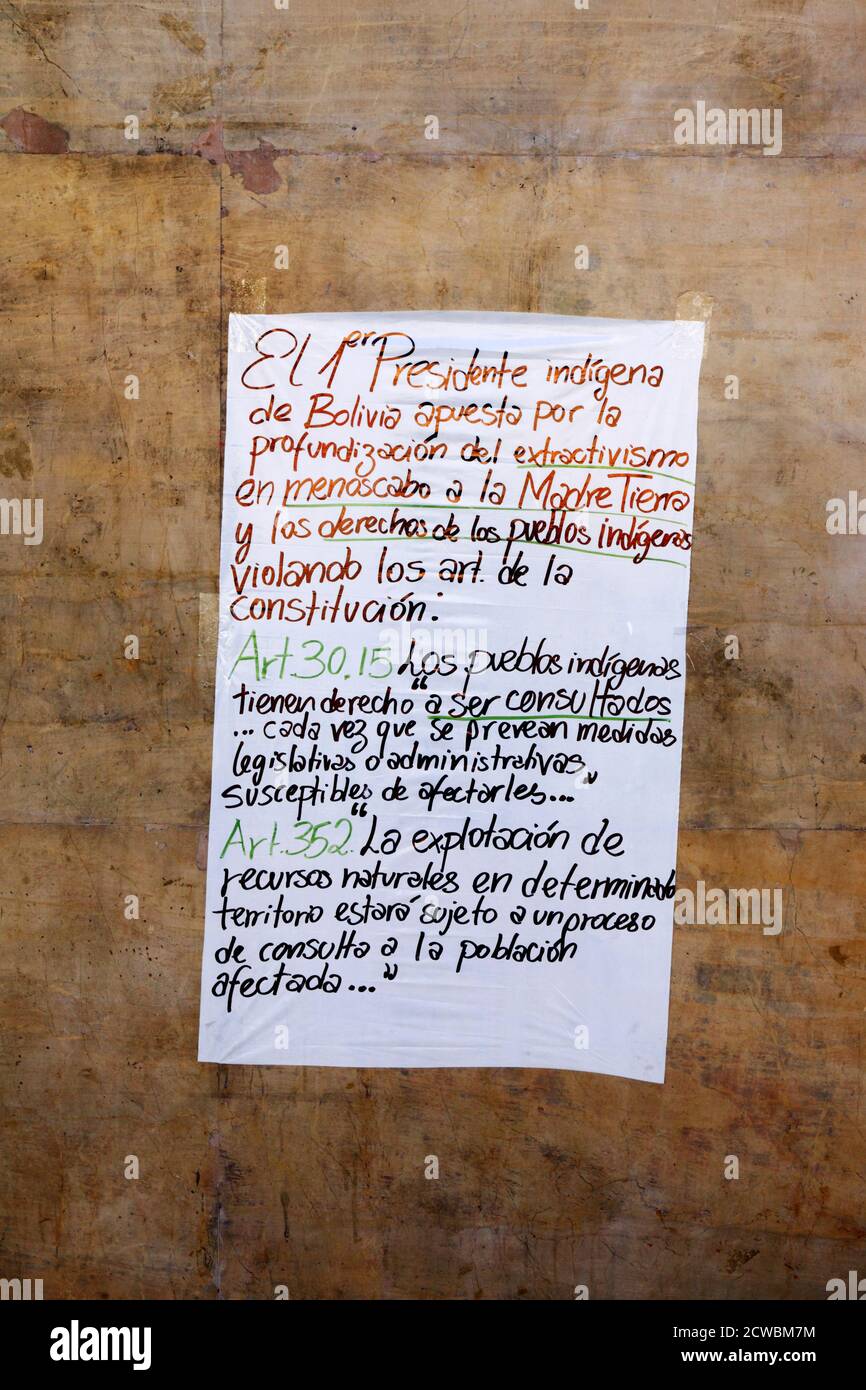 El 1er Presidente indígena
de Bolivia apuesta por la
profundización del extractivismo
en menoscabo a la Madre Tierra
y los derechos de los pueblos indígenas
violando los art. de la
constitución:
Art.30.15 Los pueblos indígenas
tienen derecho "a ser consultados
... cada vez que se prevean medidas
legislativas o administrativas
susceptibles de afectarles..."
Art.352. "La explotación de
recursos naturales en determinado
territorio estará sujeto a un proceso
de consulta a la población
afectada..."
alamy
Image ID: 2CWBM7M
www.alamy.com